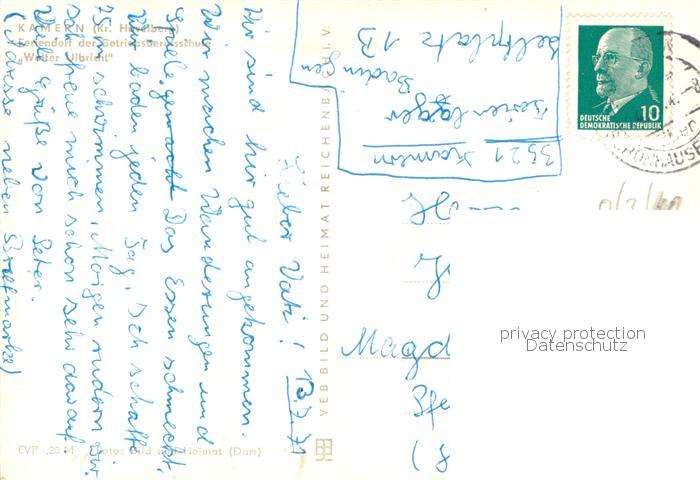 KAMERN (Kr. Havelberg)
Feriendorf der Betriebsberufsschule
"Walter Ulbricht"
Lieber Vati! 13.7.71
Wir sind hier gut angekommen.
Wir machen Wanderungen und
Spiele, gemacht Das Essen schmeckt.
Wir baden jeden Tag, Ich schaffe
75 m schwimmen, Morgen rudern wir.
Ich freue mich schon sehr darauf
Viele Grüße von Peter.
(Adresse neben Briefmarke)
EVP -,20 M Foto: Bild und Heimat (Darr)
VEB BILD UND HEIMAT REICHENBACH I. V.
3521 Kamern
Ferienlager
Zeltplatz 13
DEUTSCHE
DEMOKRATISCHE REPUBLIK
10
SCHÖNHAUSE
Magd
privacy protection
Datenschutz